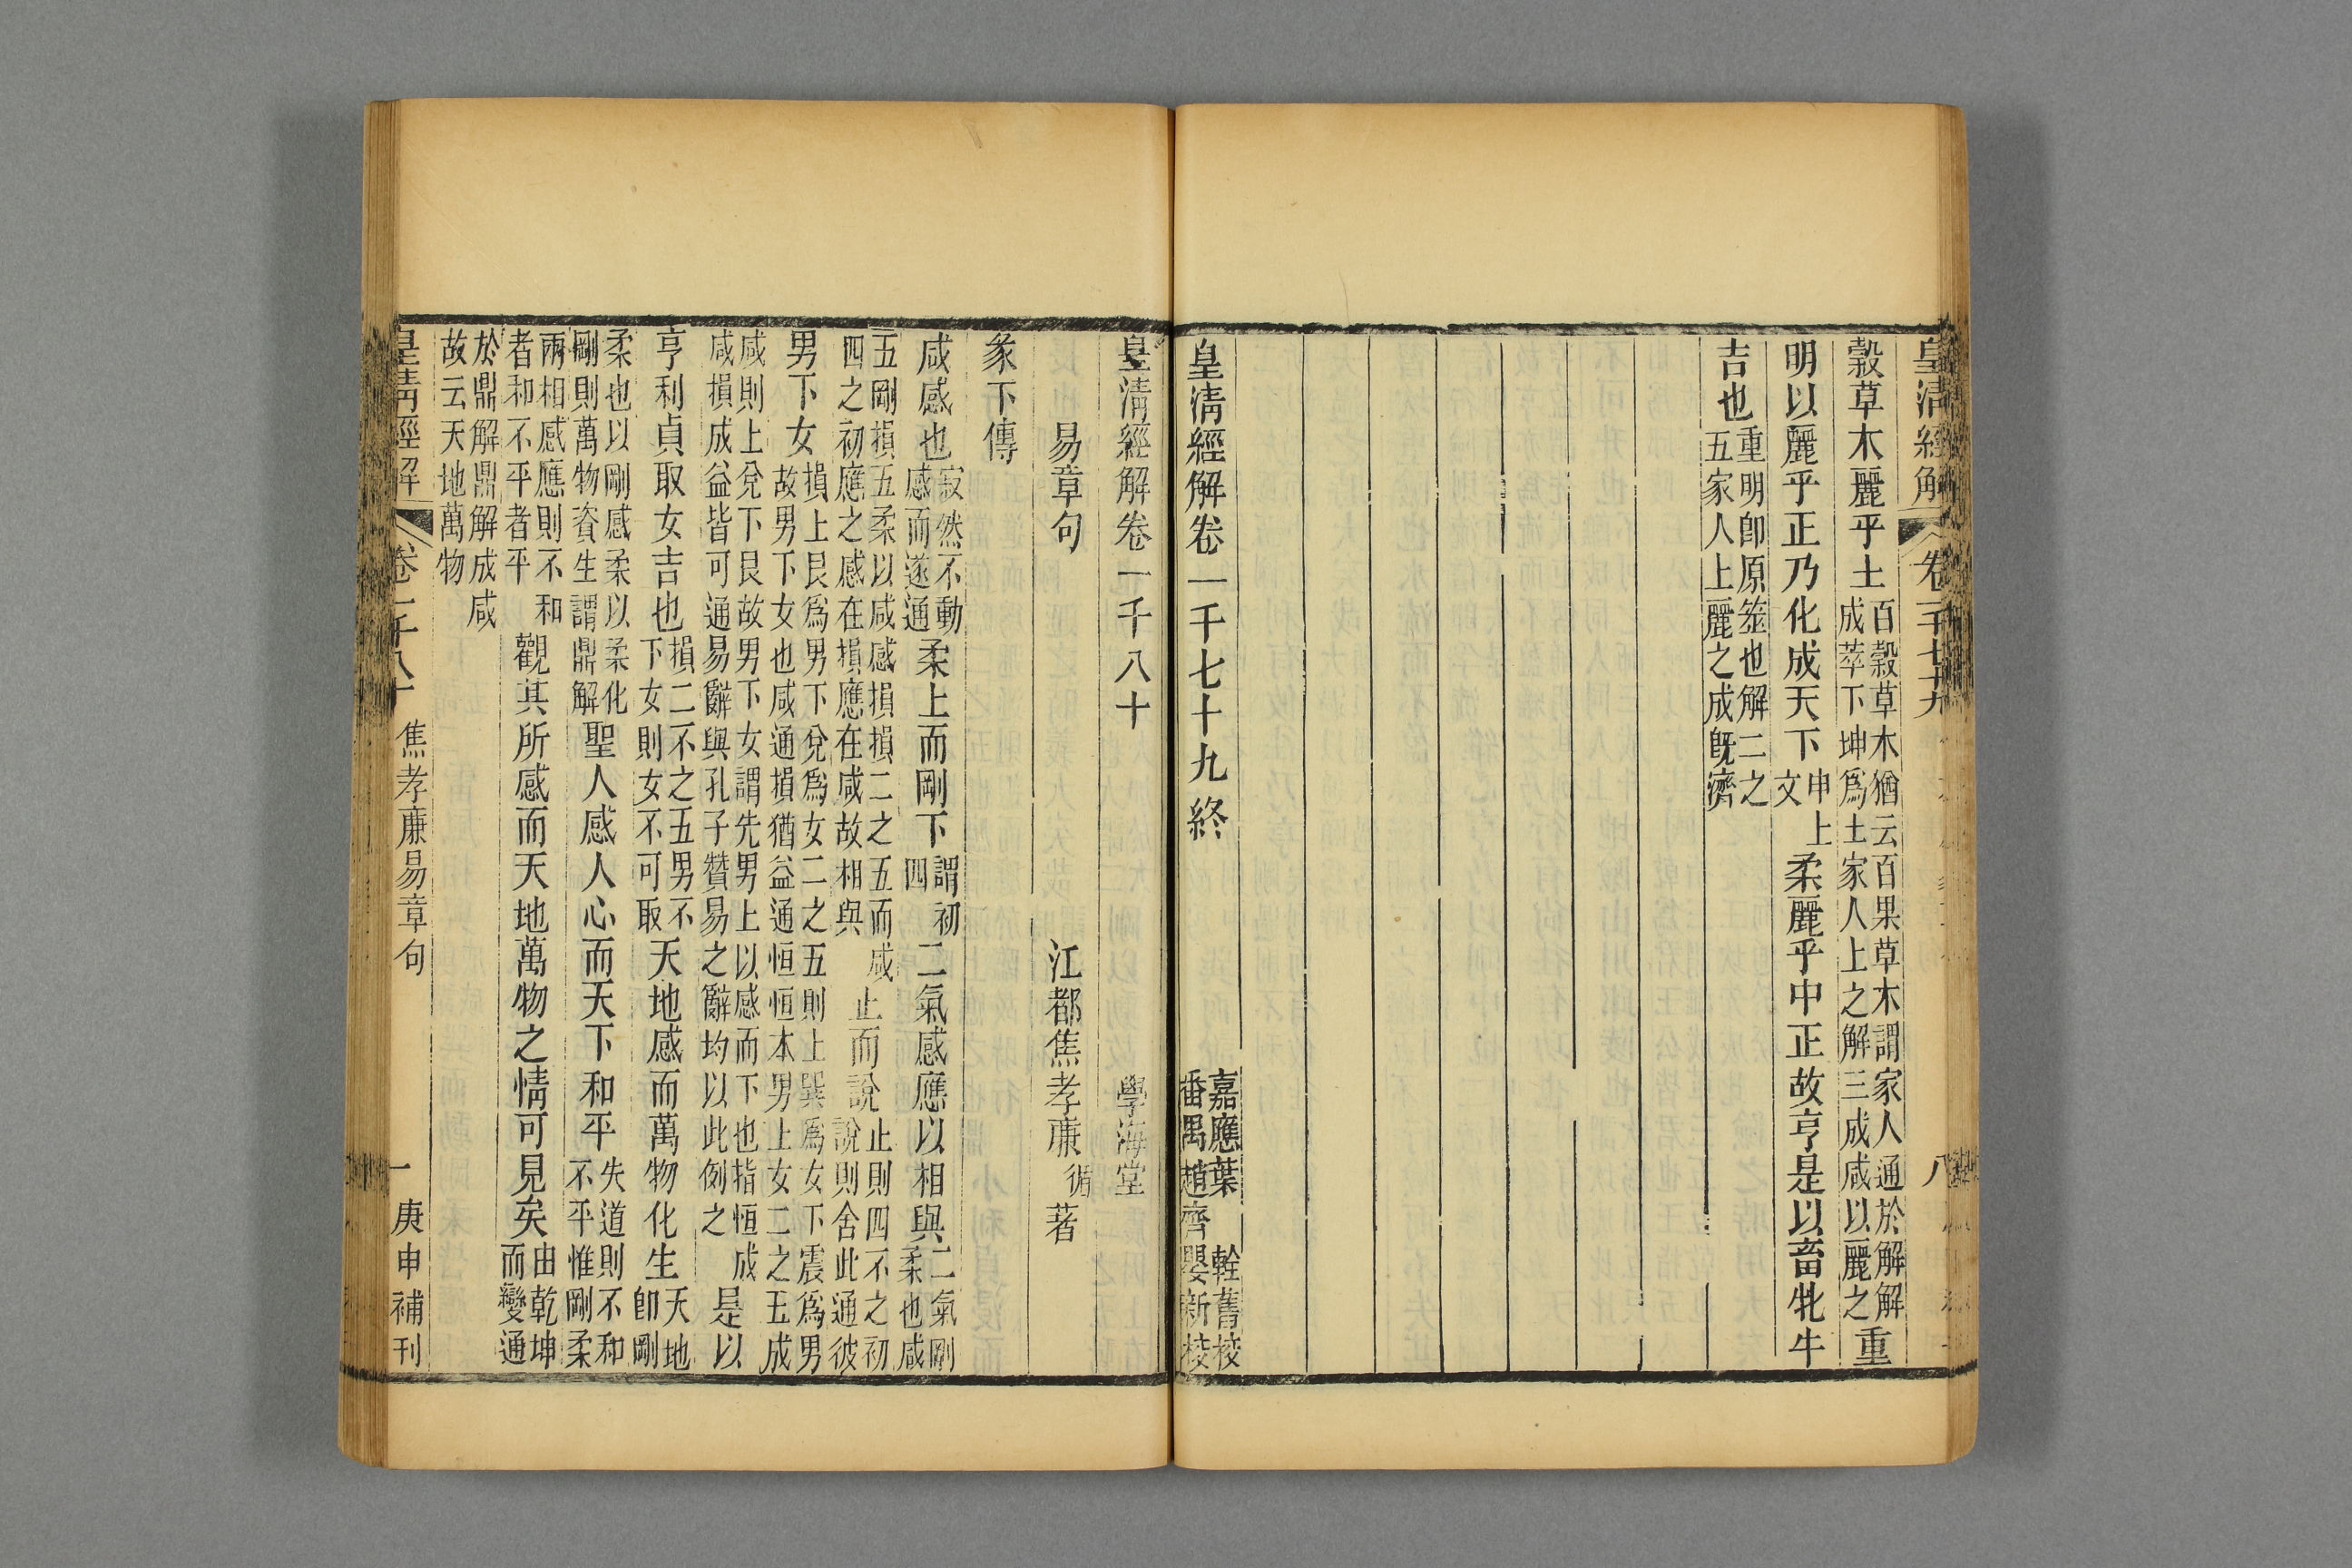 皇清經解 卷一千七十九 八
穀草木麗乎土百穀草木猶云百果草木謂家人通於解解
成萃下坤為土家人上之解三成咸以麗之重
明以麗乎正乃化成天下申上
文柔麗乎中正故亨是以畜牝牛
吉也重明卽原筮也解二之
五家人上麗之成旣濟
皇清經解卷一千七十九終
嘉應葉 輇舊校
番禺趙齊嬰新校
皇清經解卷一千八十 學海堂
易章句 江都焦孝廉循著
彖下傳
咸感也寂然不動
感而遂通柔上而剛下謂初
四二氣感應以相與二氣剛
柔也咸
五剛損五柔以咸感損損二之五而咸
四之初應之感在損應在咸故相與止而說止則四不之初
說則舍此通彼
男下女損上艮為男下兌為女二之五則上巽為女下震為男
故男下女也咸通損猶益通恒恒本男上女二之五成
咸則上兌下艮故男下女謂先男上以感而下也指恒成
咸損成益皆可通易辭與孔子贊易之辭均以此例之是以
亨利貞取女吉也損二不之五男不
下女則女不可取天地感而萬物化生天地
卽剛
柔也以剛感柔以柔化
剛則萬物資生謂鼎解聖人感人心而天下和平失道則不和
不平惟剛柔
兩相感應則不和
者和不平者平觀其所感而天地萬物之情可見矣由乾坤
而變通
於鼎解鼎解成咸
故云天地萬物
皇清經解 卷一千八十 焦孝廉易章句 一 庚申補刊